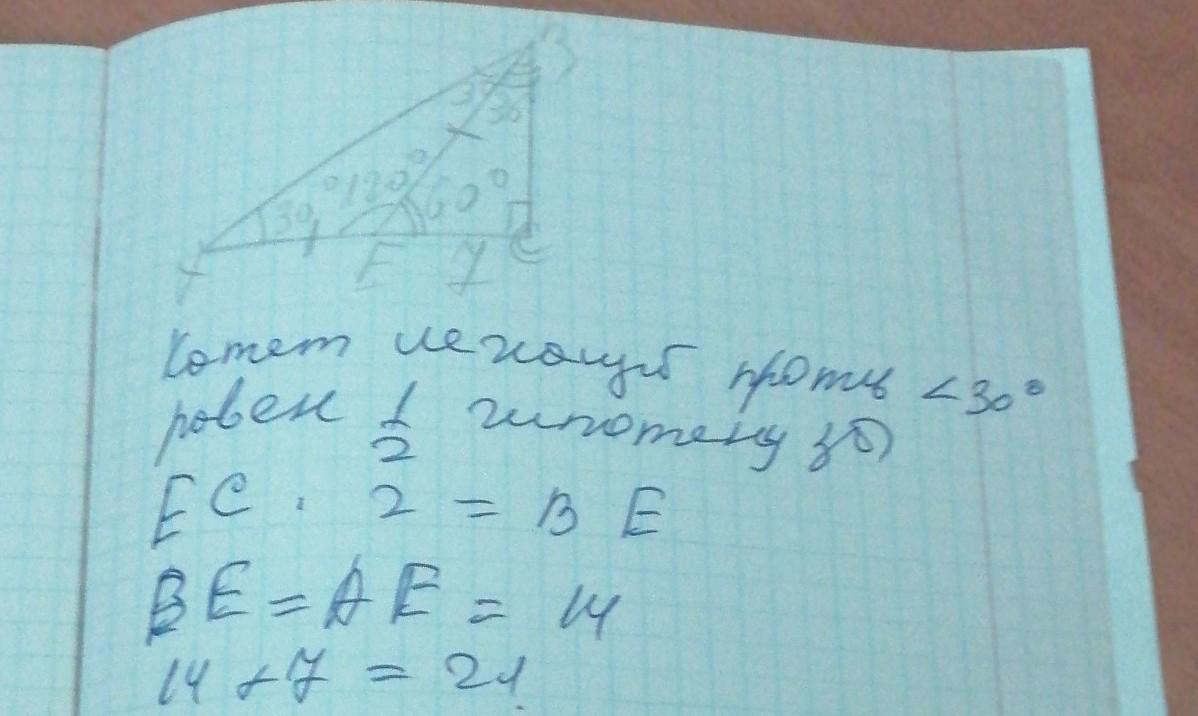 B
30
30
30°
120°
60°
A
E
7
C
Катет лежащий против <30°
равен 1/2 гипотенузы
EC · 2 = BE
BE = AE = 14
14 + 7 = 21.